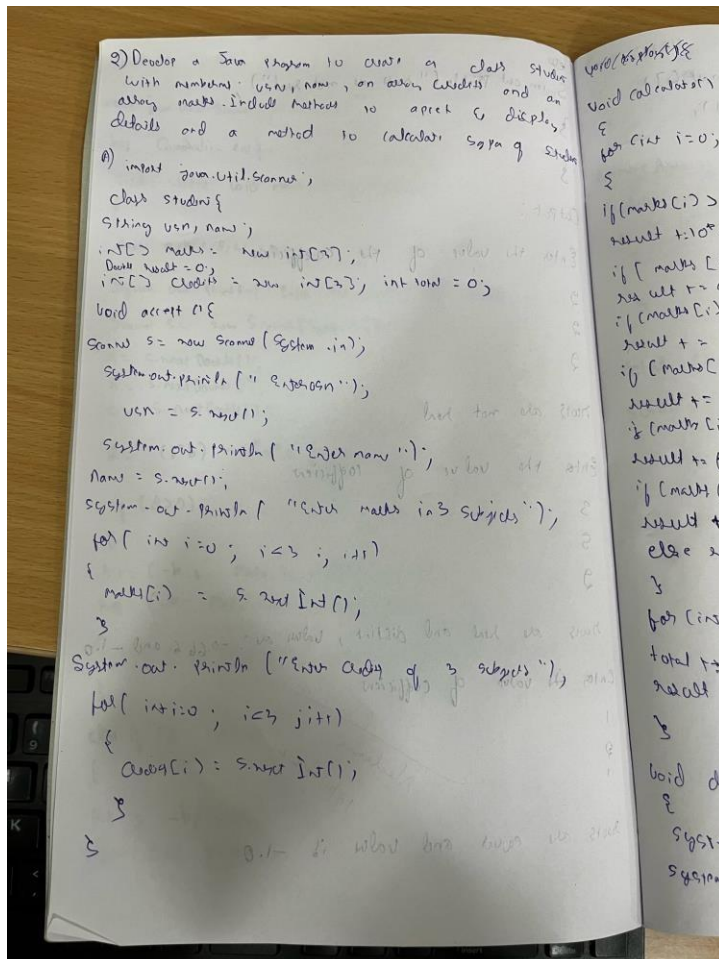 2) Develop a Java program to create a class Student
with members usn, name, an array credits and an
array marks. Include methods to accept & display
details and a method to calculate sgpa of student
A) import java.util.Scanner;
class student {
String usn, name;
int[] marks = new int[3];
Double result = 0;
int[] credits = new int[3]; int total = 0;
void accept () {
Scanner s = new Scanner (System.in);
System.out.println (" Enter usn ");
usn = s.next();
System.out.println ( "Enter name ");
name = s.next();
System.out.println ( "Enter marks in 3 subjects");
for( int i=0 ; i<3 ; i++)
{
marks[i] = s.next Int();
}
System.out.println ("Enter credits of 3 subjects");
for( int i=0 ; i<3 ; i++)
{
credits[i] = s.next Int();
}
}
void calculate()
{
for (int i=0;
{
if(marks[i] >
result +=10*
if( marks [
result +=
if(marks[i]
result + =
if (marks[
result +=
if (marks[i
result +=
if (marks [
result +
else
}
for (int
total +
result
}
void d
{
Syst
System